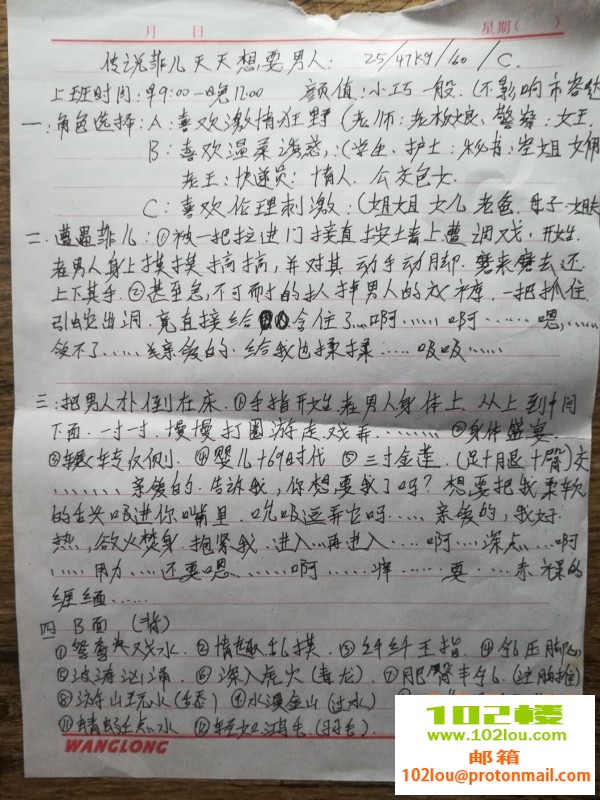 月 日 星期( )
传说菲儿天天想要男人: 25/47kg/160/C.
上班时间:早9:00—晚12:00 颜值:小巧一般.(不影响市容
一:角色选择:A:喜欢激情狂野(老师:老板娘、警察:女王.
B:喜欢温柔诱惑:(学生、护士:秘书:空姐 女佣
老王:快递员:情人.公交色女.
C:喜欢伦理刺激:(姐姐 女儿 老爸.母子
二.遭遇菲儿:①被一把拉进门 直按 上遭调戏,开始
在男人身上摸摸搞搞,并对其动手动脚.磨来磨去还
上下其手.②甚至急,不可耐的 男人的衣裤.一把抓住
引蛇出洞.竟直接给 含住了...啊...... 啊...... 嗯,......
受不了......亲爱的.给我也揉揉......吸吸......
三:把男人扑倒在床.①手指开始在男人身体上.从上到中间
下面.一寸一寸.慢慢打圈游走戏弄........②身体盛宴
③辗转反侧.④婴儿+69时代 ⑤三寸金莲.(足+腿+臀)交
........亲爱的.告诉我,你想要我了吗?想要把我柔软
的舌头吸进你嘴里.吮吸逗弄它吗......亲爱的,我好
热,欲火焚身.抱紧我.进入...再进入....啊....深点...啊
....用力....还要嗯......啊......痒......要...赤裸的
缠绵......
四 B面 (背)
①鸳鸯戏水.②情趣乱摸 ③纤纤玉指.④
⑤波涛汹涌.⑥深入虎穴(毒龙)⑦
⑧游山玩水(舔)⑨水漫金山(过水)
⑪蜻蜓点水 ⑫
WANGLONG
102楼
www.102lou.com
邮箱
102lou@protonmail.com